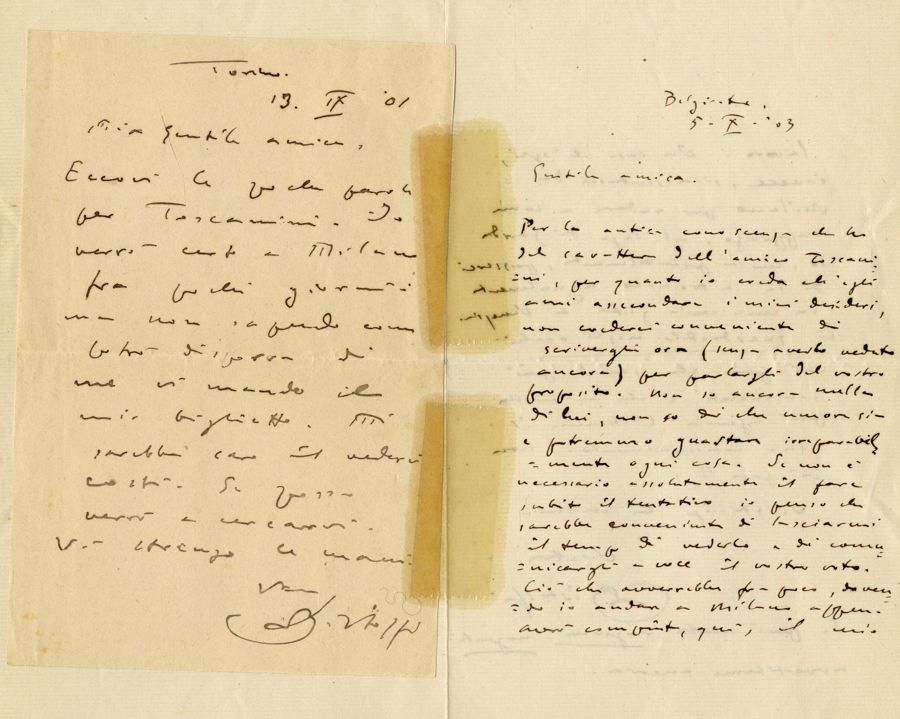 Torino.
13. IX '01
Mia Gentile amica,
Eccovi le poche parole
per Toscanini. Io
verrò certo a Milano
fra pochi giorni
ma non sapendo come
potrò disporre di
me vi mando il
mio biglietto. Mi
sarebbe caro il vedervi
costì. Se posso
verrò a cercarvi.
Vi stringo la mano.
Belgirate.
5 - X - '03
Gentile amica.
Per la antica conoscenza che ho
del carattere dell'amico Toscani-
=ni, per quanto io creda ch'egli
ami assecondare i miei desideri,
non crederei conveniente di
scrivergli ora (senza averlo veduto
ancora) per parlargli del vostro
proposito. Non so ancora nulla
di lui, non so di che umore sia
e potremmo guastare irreparabil
=mente ogni cosa. Se non è
necessario assolutamente il fare
subito il tentativo io penso che
sarebbe conveniente di lasciarmi
il tempo di vederlo e di comu=
=nicargli a voce il vostro voto.
Ciò che avverrebbe fra poco, doven=
=do io andare a Milano appen-
avrò compiuto, qui, il mio